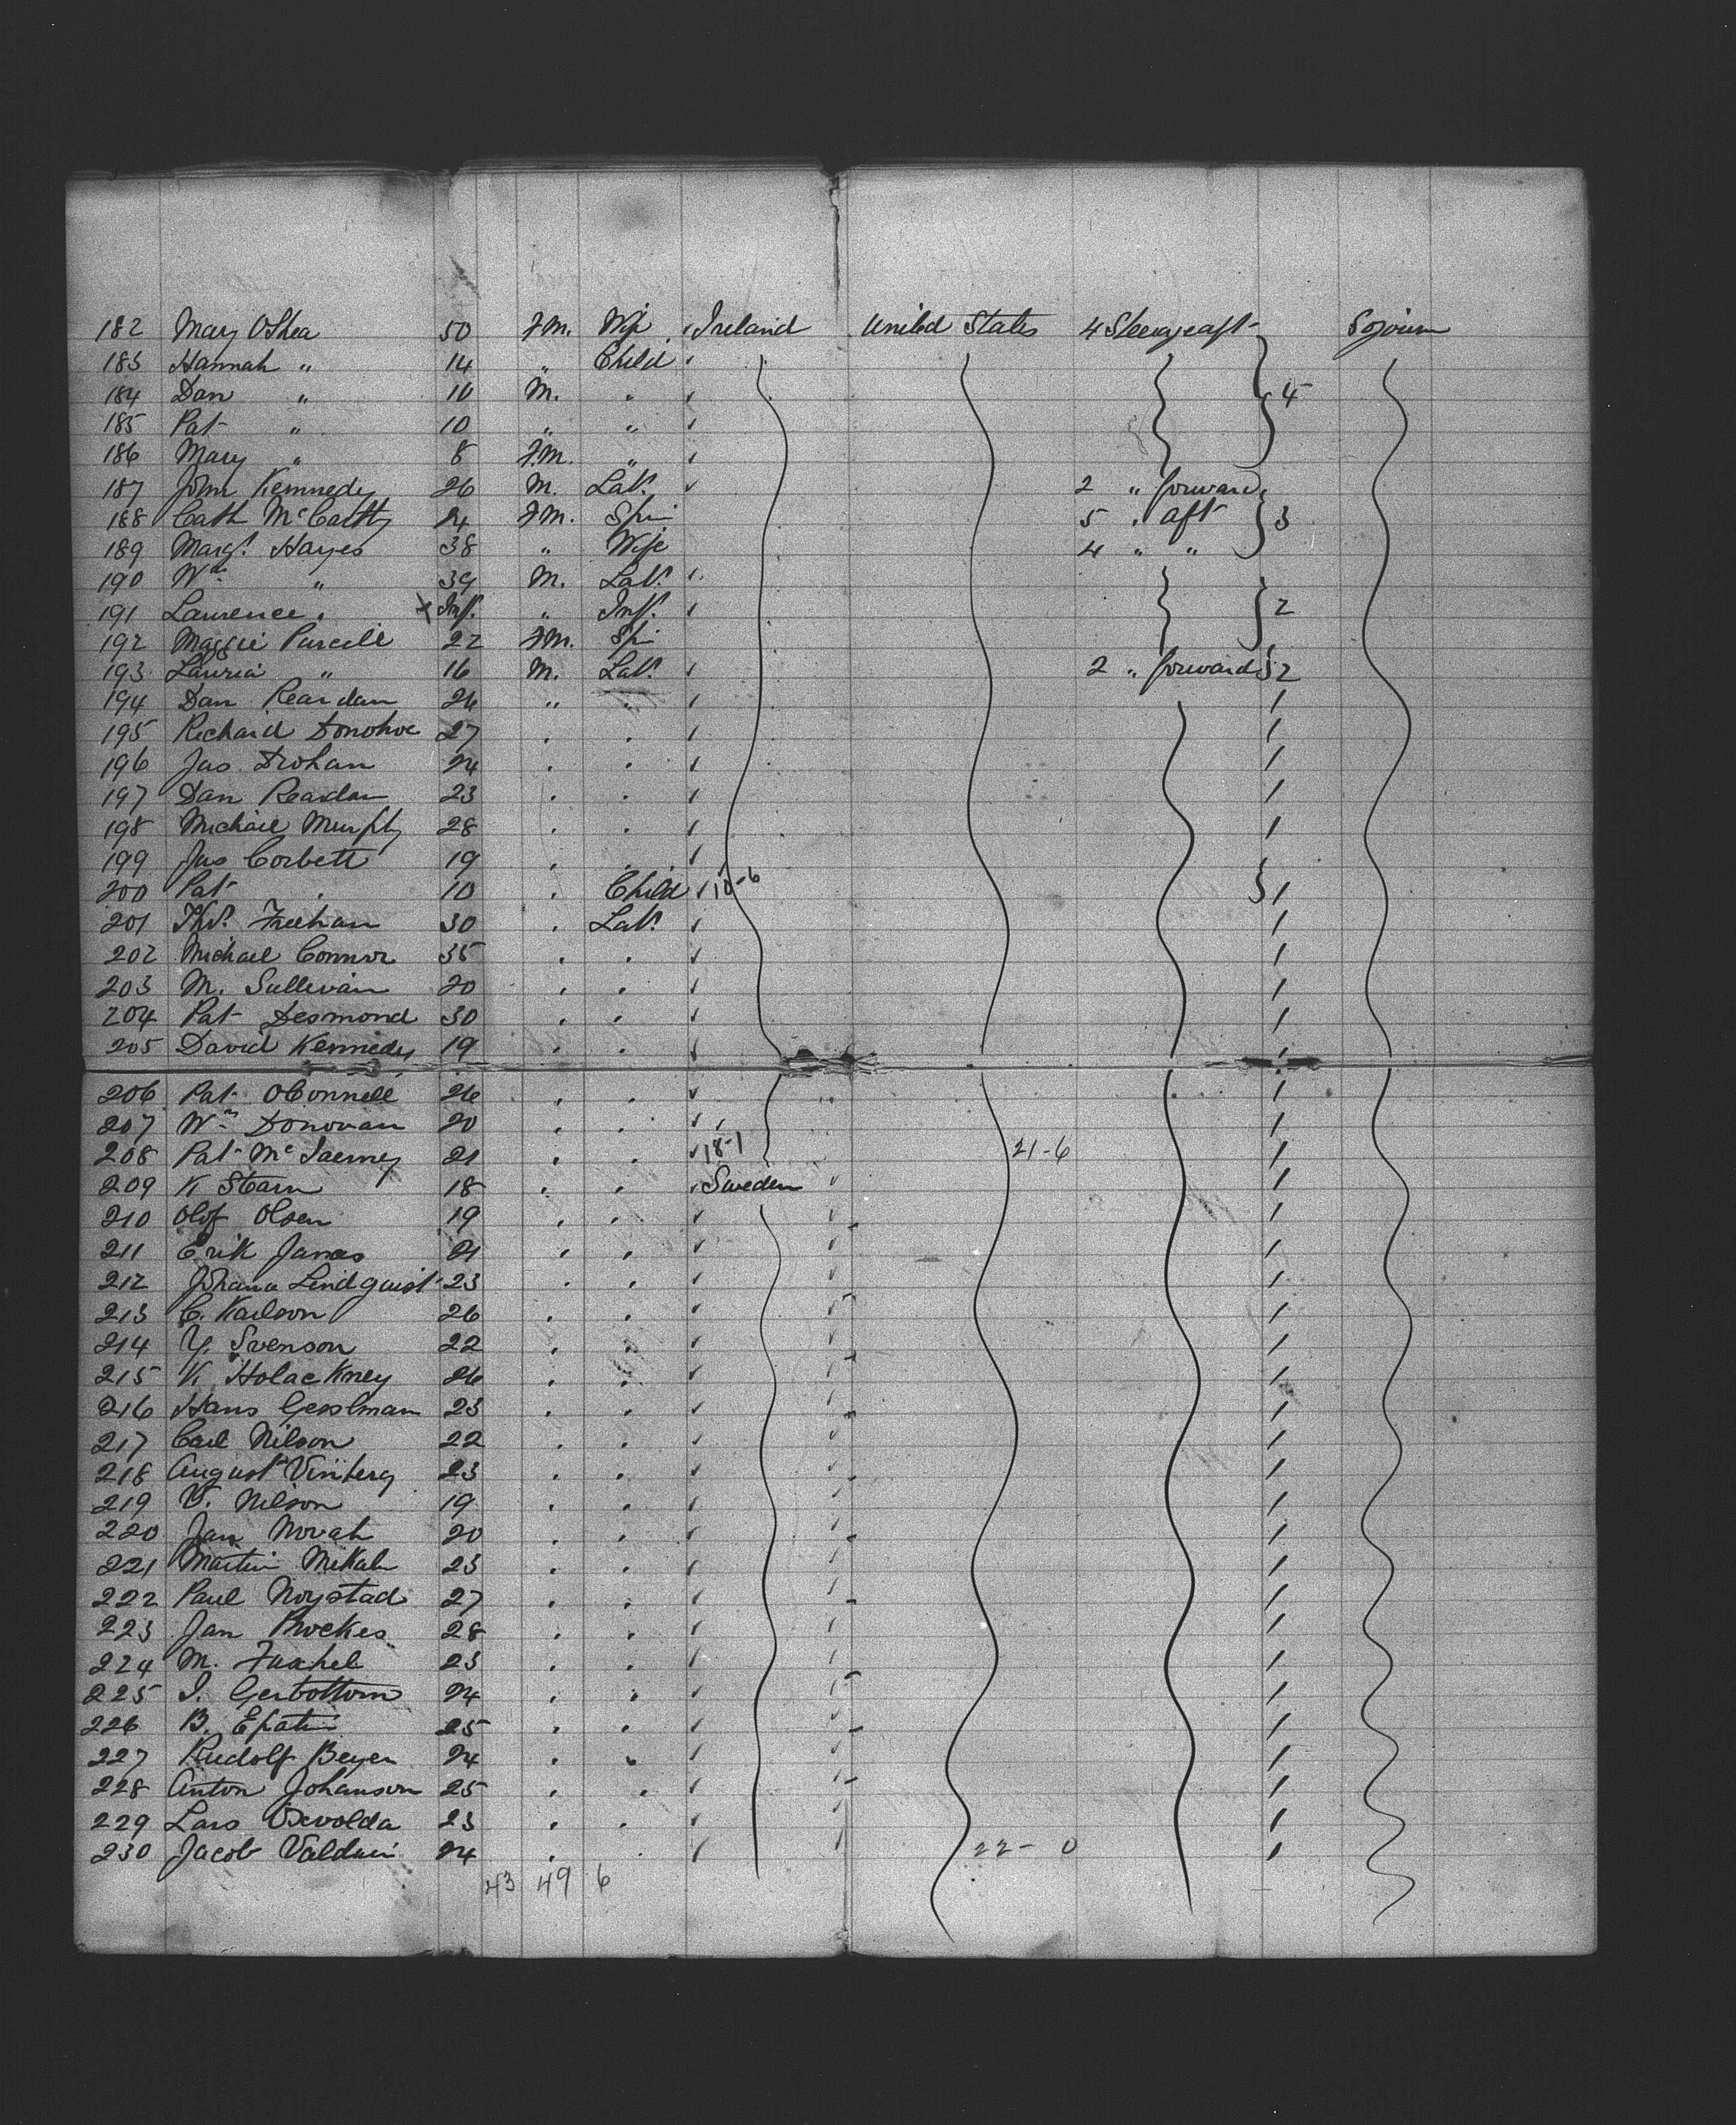 182 Mary OShea 50 F.M. Wife Ireland United States 4 Steerage aft Sojourn
183 Hannah " 14 " Child
184 Dan " 10 M. " 4
185 Pat " 10 " "
186 Mary " 8 F.M. "
187 John Kennedy 26 M. Labr 2 " forward
188 Cath McCarthy 24 F.M. Spin 5 " aft 3
189 Margt Hayes 38 " Wife 4 " "
190 Wm " 39 M. Labr
191 Laurence " Inft. " Inft. 2
192 Maggie Purcell 22 F.M. Spin
193 " 16 M. Labr 2 " forward 2
194 Dan Reardan 26 " " 1
195 Richard Donohoe 27 " " 1
196 Jas Drohan 24 " " 1
197 Dan Reardan 23 " " 1
198 Michael Murphy 28 " " 1
199 Jas Corbett 19 " "
200 Pat " 10 " Child 10-6 1
201 Thos Feehan 30 " Labr 1
202 Michael Connor 35 " " 1
203 M. Sullivan 20 " " 1
204 Pat Desmond 30 " " 1
205 David Kennedy 19 " " 1
206 Pat OConnell 26 " " 1
207 Wm Donovan 20 " " 1
208 Pat McInerney 21 " " 18-1 21-6 1
209 K Starn 18 " " Sweden 1
210 Olof Olsen 19 " " 1
211 Erik Janas 21 " " 1
212 Johana Lindquist 23 " " 1
213 C. Karlson 26 " " 1
214 Y. Svenson 22 " " 1
215 K. Holackney 26 " " 1
216 Hans Gesslman 23 " " 1
217 Carl Nilson 22 " " 1
218 August Vinberg 23 " " 1
219 V. Nilson 19 " " 1
220 Jan Novak 20 " " 1
221 Martin 23 " " 1
222 Paul Noystad 27 " " 1
223 Jan Prockes 28 " " 1
224 M. 23 " " 1
225 I. Gerbottom 24 " " 1
226 B. Epatin 25 " " 1
227 Rudolf Beyer 24 " " 1
228 Anton Johanson 25 " " 1
229 Lars 23 " " 1
230 Jacob 24 " " 22-0 1
43 49 6